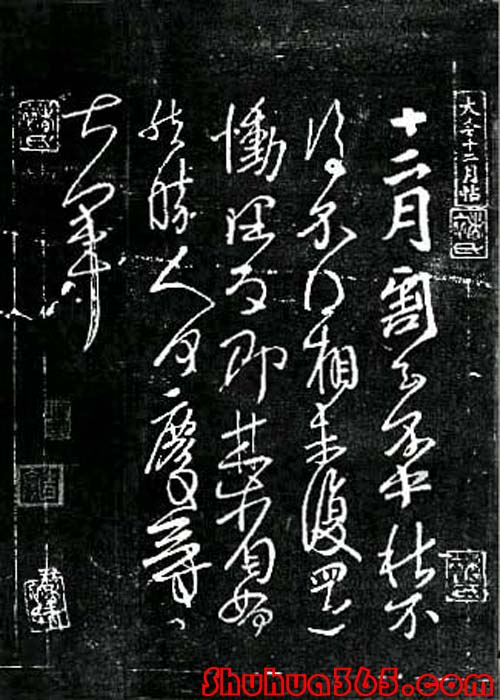 大令十二月帖
十二月割至不中秋不
復不得相未復還
慟理為即甚省如何
然勝人何慶等
大軍
Shuhua365.com